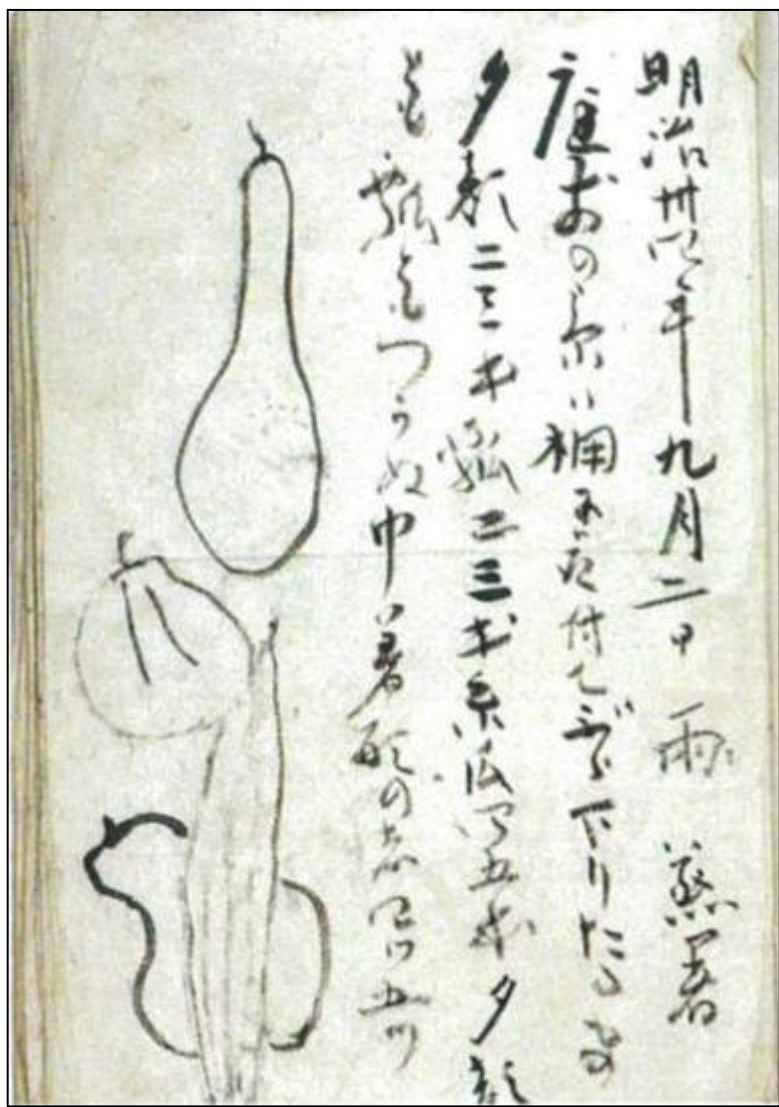 明治卅四年九月二日 雨 蒸暑
庭前の景は棚に取付てぶら下りたるもの
夕顔二三本瓢二三本糸瓜四五本夕顔
とも瓢ともつかぬ巾着形の者四つ五つ